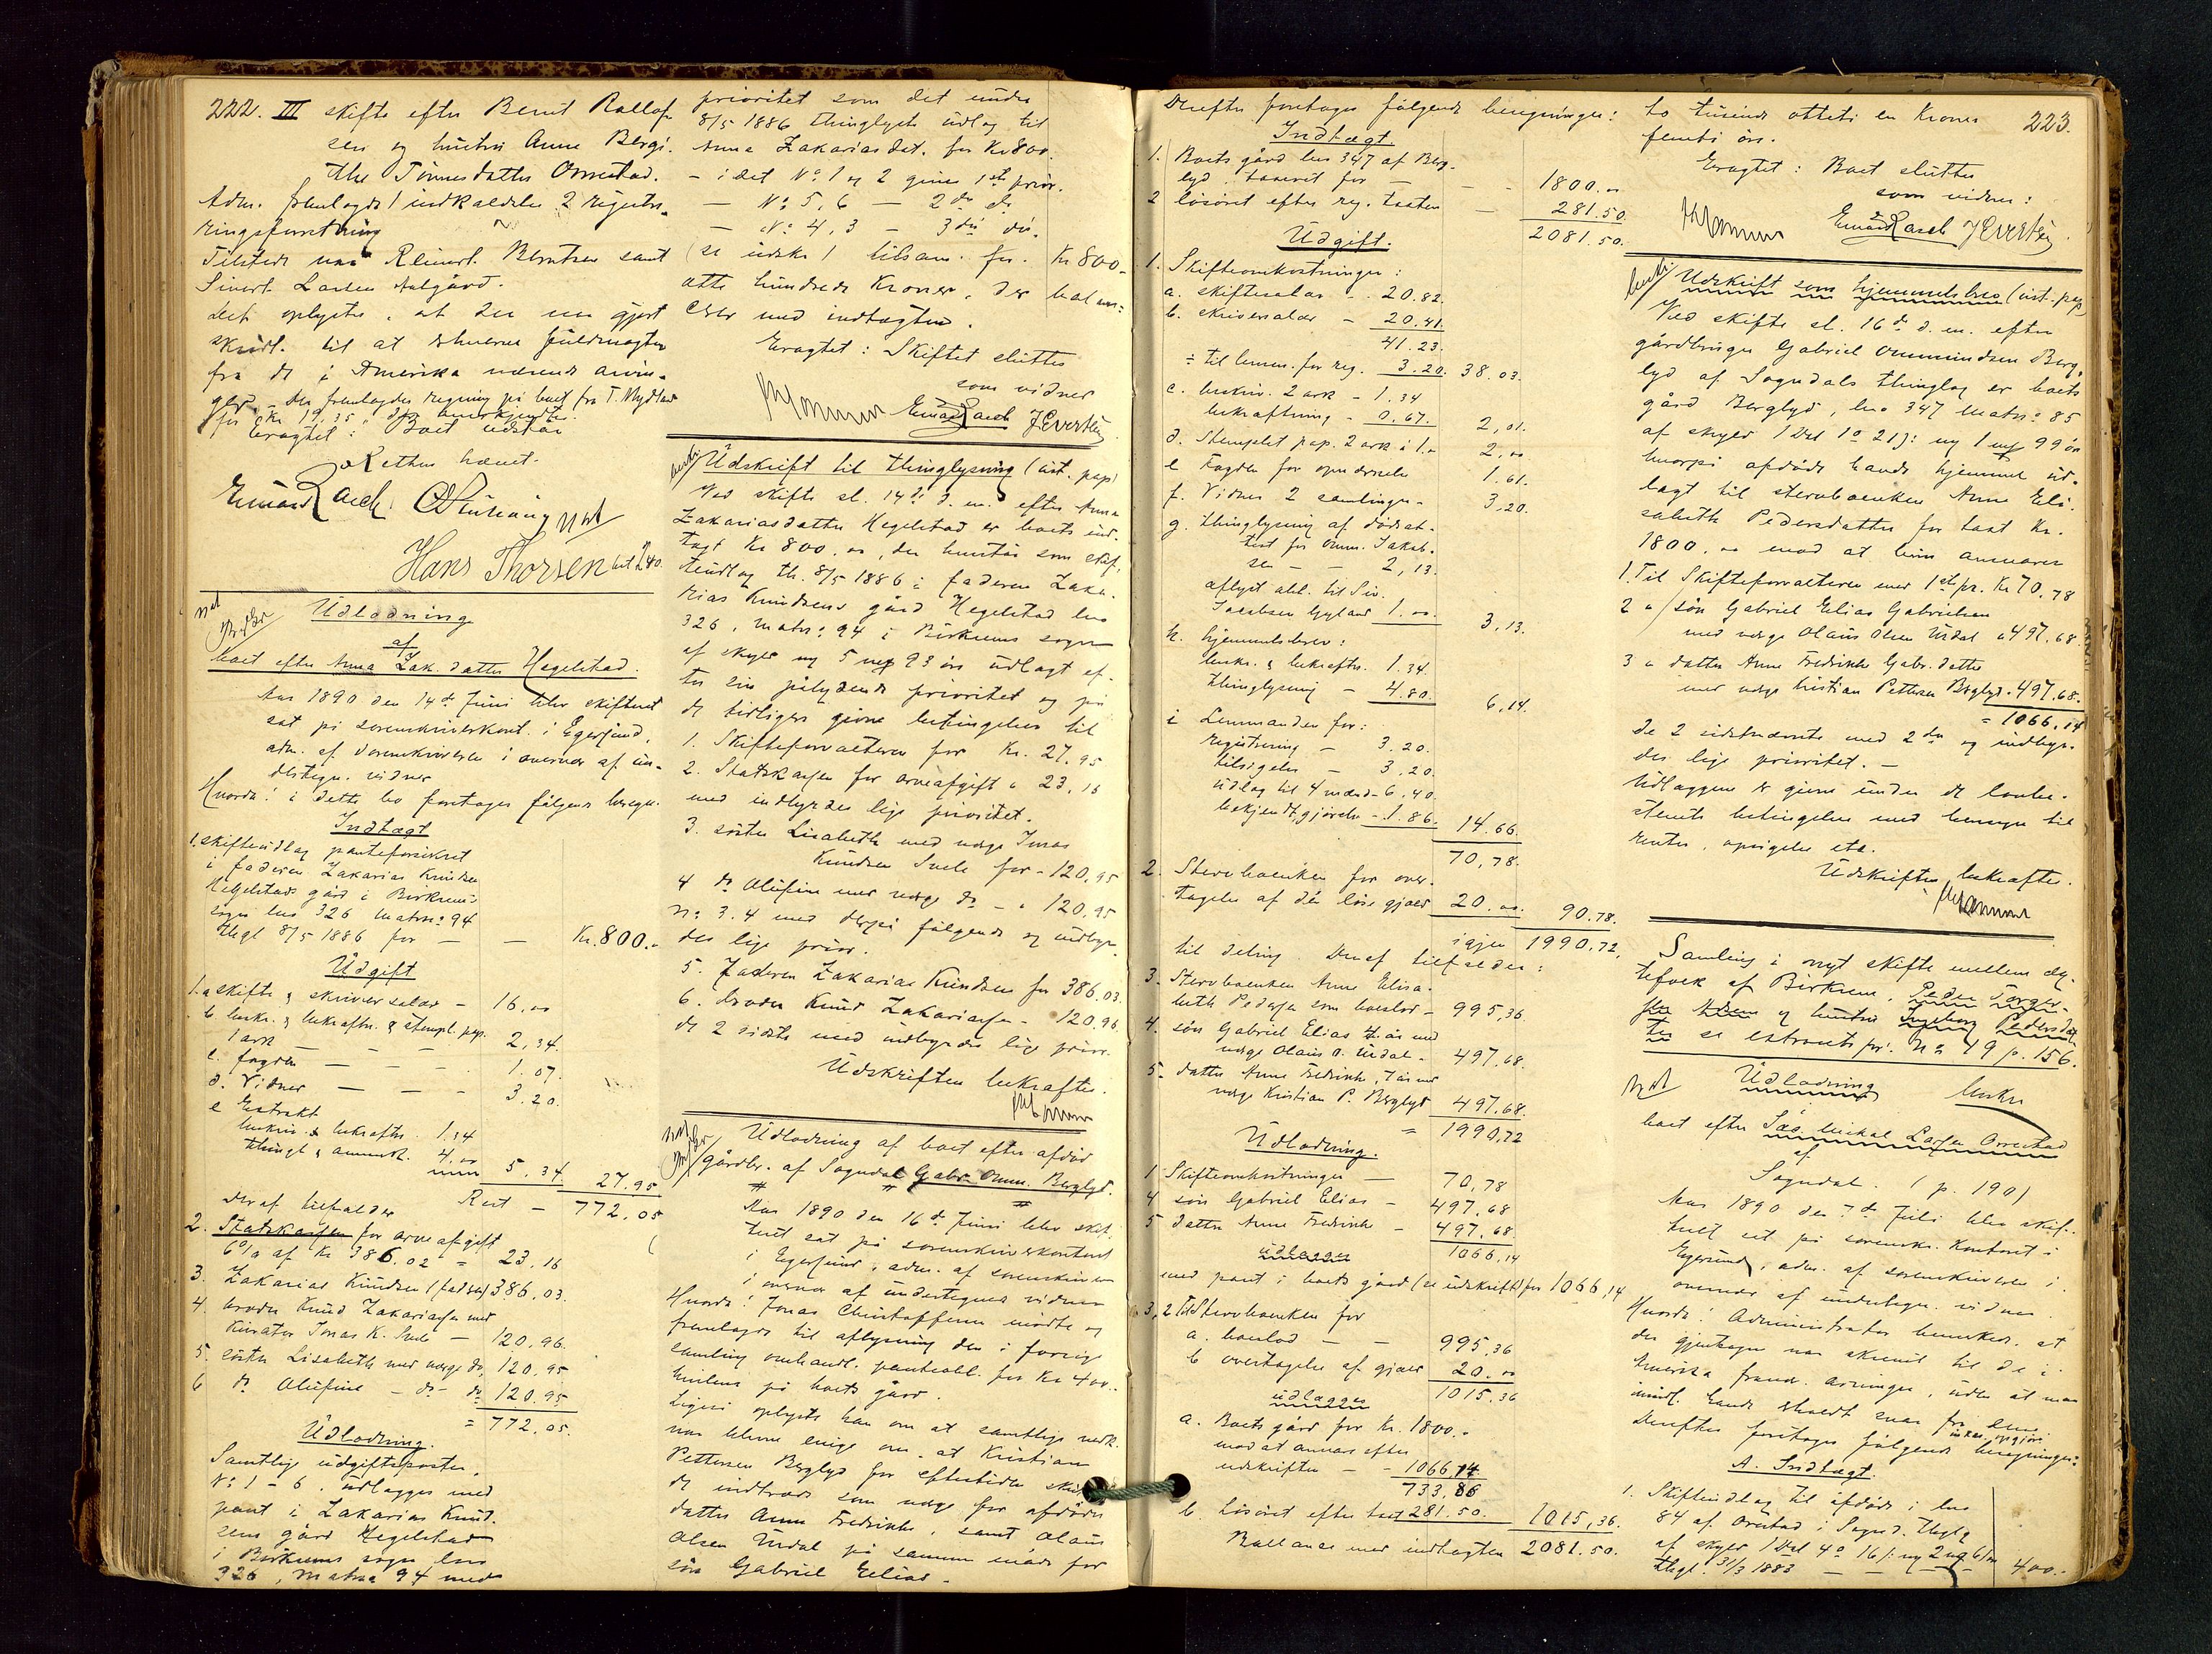 222. III skifte efter Berent Rollof-
sen og hustru Anne Bergi-
the Tønnesdatter Omestad.
Adm. fremlagde 1 indkaldelse 2 registre-
ringsforretning
Tilstede var Reinert Berntsen samt
Sivert Larsen Aalgård.
det oplystes, at der var gjort
skridt til at erhverve fuldmagter
fra de i Amerika værende arvin-
ger. Der fremlagdes regning på boet fra T. Mydland
for Kr 19,35, der anerkjendtes.
Eragtet: Boet udstår
Retten hævet.
Hans Thorsen
Udlodning
af
boet efter Anna Zak.datter Hegelstad.
Aar 1890 den 14de Juni blev skifteret
sat på sorenskriverkont. i Egersund,
adm. af sorenskriveren i overvær af un-
dertegn. vidner
Hvorda: i dette bo foretoges følgende beregn.
Indtægt
1. skifteudlæg panteforsikret
i faderen Zakarias Knudsen
Hegelstads gård i Birkrems
sogn lno 326 matrno 94
thgl 8/5 1886 for — — Kr. 800.-
Udgift
1.a skifte & skriversalær – 16,00
b. beskr. & bekræftn. & stempl. pap.
1 ark — — — 2,34.
c. fogden — — — 1.07.
d. Vidner — — — 3.20.
e Extrakt
beskriv. & bekræftn. 1.34
thingl & anmærk. 4,00
5.34. 27.95
Deraf tilfalder Rest – 772,05
2. Statskassen for arveafgift
6% af Kr 386.02 = 23,16
3. Zakarias Knudsen (faderen) 386,03.
4. broder Knud Zakariasen med
kurator Jonas K. Svele — 120,96.
5. søster Lisabeth med værge do, 120,95
6 do Olufine – do – do 120.95
= 772,05.
Udlodning.
Samtlige udgiftsposter,
No 1 – 6. udlægges med
pant i Zakarias Knud-
sens gård Hegelstad
i Birkrems sogn lno
326, matrno 94 med
prioritet som det under
8/5 1886 thinglyste udlæg til
Anna Zakariasdat. for Kr 800.
– idet No 1 og 2 gives 1ste prior.
— No 5, 6 — 2den do
— No 4, 3 — 3die do.
(se udskr) tilsam. for. Kr 800-
otte hundrede Kroner, der balan-
cerer med indtægten.
Eragtet: Skiftet sluttes
som vidner
Udskrift til thinglysning (ust. pap)
Ved skifte sl. 14de d. m. efter Anna
Zakariasdatter Hegelstad er boets ind-
tægt Kr 800.00, der henstår som skif-
teudlæg th. 8/5 1886 i faderen Zaka-
rias Knudsens gård Hegelstad lno
326, matrno 94 i Birkrems sogn
af skyld ny 5 mk 93 øre udlagt ef-
ter sin pålydende prioritet og på
de tidligere givne betingelser til
1. Skifteforvalteren for Kr. 27.95
2. Statskassen for arveafgift " 23,16
med indbyrdes lige prioritet.
3. søster Lisabeth med værge Jonas
Knudsen Svele for - 120,95
4 do Olufine med værge do – " 120,95
No 3. 4 med derpå følgende og indbyr-
des lige prior.
5. Faderen Zakarias Knudsen for 386,03.
6. broder Knud Zakariasen – 120,96.
de 2 sidste med indbyrdes lige prior.
Udskriften bekræftes.
Udlodning af boet efter afdød
gårdbr. af Sogndal Gabr. Omm. Berglyd.
Aar 1890 den 16de Juni blev skif-
teret sat på sorenskriverkontoret
i Egersund, adm. af sorenskriveren
i overvær af undertegnede vidner
Hvorda: Jonas Christoffersen mødte og
fremlagde til aflysning den i forrige
samling omhandl. panteobl. for Kr 400.-
hvilende på boets gård.
Ligeså oplyste han om at samtlige vedk.
var blevne enige om, at Kristian
Pettersen Berglyd for eftertiden skulde
indtræde som værge for afdødes
datter Anne Fredrikke, samt Olaus
Olsen Urdal på samme måde for
søn Gabriel Elias.
Derefter foretoges følgende beregninger:
Indtægt.
1. Boets gård lno 347 af Berg-
lyd. taxeret for — — 1800.00
2 løsøret efter reg. taxten — 281.50.
2081.50.
Udgift.
1. Skifteomkostninger:
a. skiftesalær - . 20.82.
b. skriversalær – 20.41.
41.23.
÷ til lensm. for reg. 3.20. 38.03.
c. beskriv. 2 ark – 1.34
bekræftning – 0.67. 2,01.
d. Stemplet pap. 2 ark à 1.- 2,00
e Fogden for opnævnelse 1.61.
f. Vidner 2 samlinger - 3.20.
g. thinglysning af dødsat-
test for Omm. Jakob-
sen – — 2,13.
aflyst obl. til Siv.
Jacobsen Gyland 1.00. 3,13.
h. hjemmelsbrev:
beskr. & bekræftn. 1.34.
thinglysning – 4.80. 6,14.
i Lensmanden for:
registrering – 3.20.
tilsigelse – 3,20.
udlæg til 4 mænd – 6.40.
bekjendtgjørelse – 1.86. 14.66.
70,78.
2. Stervboenken for over-
tagelse af de løse gjæld 20.00. 90.78.
igjen 1990,72.
til deling. Deraf tilfalder:
3. Stervboenken Anne Elisa-
beth Pedersen som boeslod – 995,36.
4. søn Gabriel Elias år med
værge Olaus O. Urdal – 497,68.
5. datter Anne Fredrikke, 7 år med
værge Kristian P. Berglyd 497.68.
= 1990,72
Udlodning.
1 Skifteomkostninger — 70,78
4 søn Gabriel Elias – 497.68
5 datter Anne Fredrikke – 497.68.
udlægges 1066,14
med pant i boets gård (se udskrift) for 1066,14
3, 2 til Stervboenken for
a. boeslod — — 995,36
b overtagelse af gjæld 20.00
udlægges 1015,36
a. Boets gård for Kr. 1800.-
mod at ansvare efter
udskriften — – 1066,14
733,86
b. Løsøret efter taxt 281.50. 1015,36.
Ballancerer med indtægten 2081.50.
to tusinde otteti en Kroner 223.
femti øre.
Eragtet: Boet sluttes
som vidner:
Udskrift som hjemmelsbrev (ust. pap)
Ved skifte sl. 16de d. m. efter
gårdbruger Gabriel Ommundsen Berg-
lyd af Sogndals thinglag er boets
gård Berglyd, lno 347 matrno 85
af skyld 1 Dal 1 o 21 s: ny 1 mk 99 øre
hvorpå afdøde havde hjemmel ud-
lagt til stervboenken Anne Eli-
sabeth Pedersdatter for taxt Kr.
1800.00 mod at hun ansvarer
1. Til Skifteforvalteren med 1ste pr. Kr 70,78
2 " søn Gabriel Elias Gabrielsen
med værge Olaus Olsen Urdal " 497,68.
3 " datter Anne Fredrikke Gabr.datter
med værge Kristian Pettersen Berglyd - 497.68.
= 1066,14
de 2 sidstnævnte med 2den og indbyr-
des lige prioritet. —
Udlæggene er givne under de lovbe-
stemte betingelser med hensyn til
renter, opsigelse etc.
Udskriften bekræftes.
Samling i nyt skifte mellem æg-
tefolk af Birkrem, Peder Torger-
sen og hustru Ingeborg Pedersdat-
ter se extraretspr. No 49 p. 156.
Udlodning
boet efter Larsen Orrestad
af
Sogndal. (p. 190)
Aar 1890 den 7de Juli blev skif-
teret sat på sorenskr. Kontoret i
Egersund, adm. af sorenskriveren i
overvær af undertegn. vidner
Hvorda: Administrator bemærkede, at
der gjentagne var skrevet til de i
Amerika fravær. arvinger, uden at man
havde erholdt svar fra dem.
Derefter foretoges følgende beregninger:
A. Indtægt.
1. Skifteudlæg til afdøde i lno
84 af Orrestad i Sognd. thglg
af skyld 1 Dal 4 o 16 s: ny 2 mk 61 ø
thgl. 31/3 1883 — — — 400.-